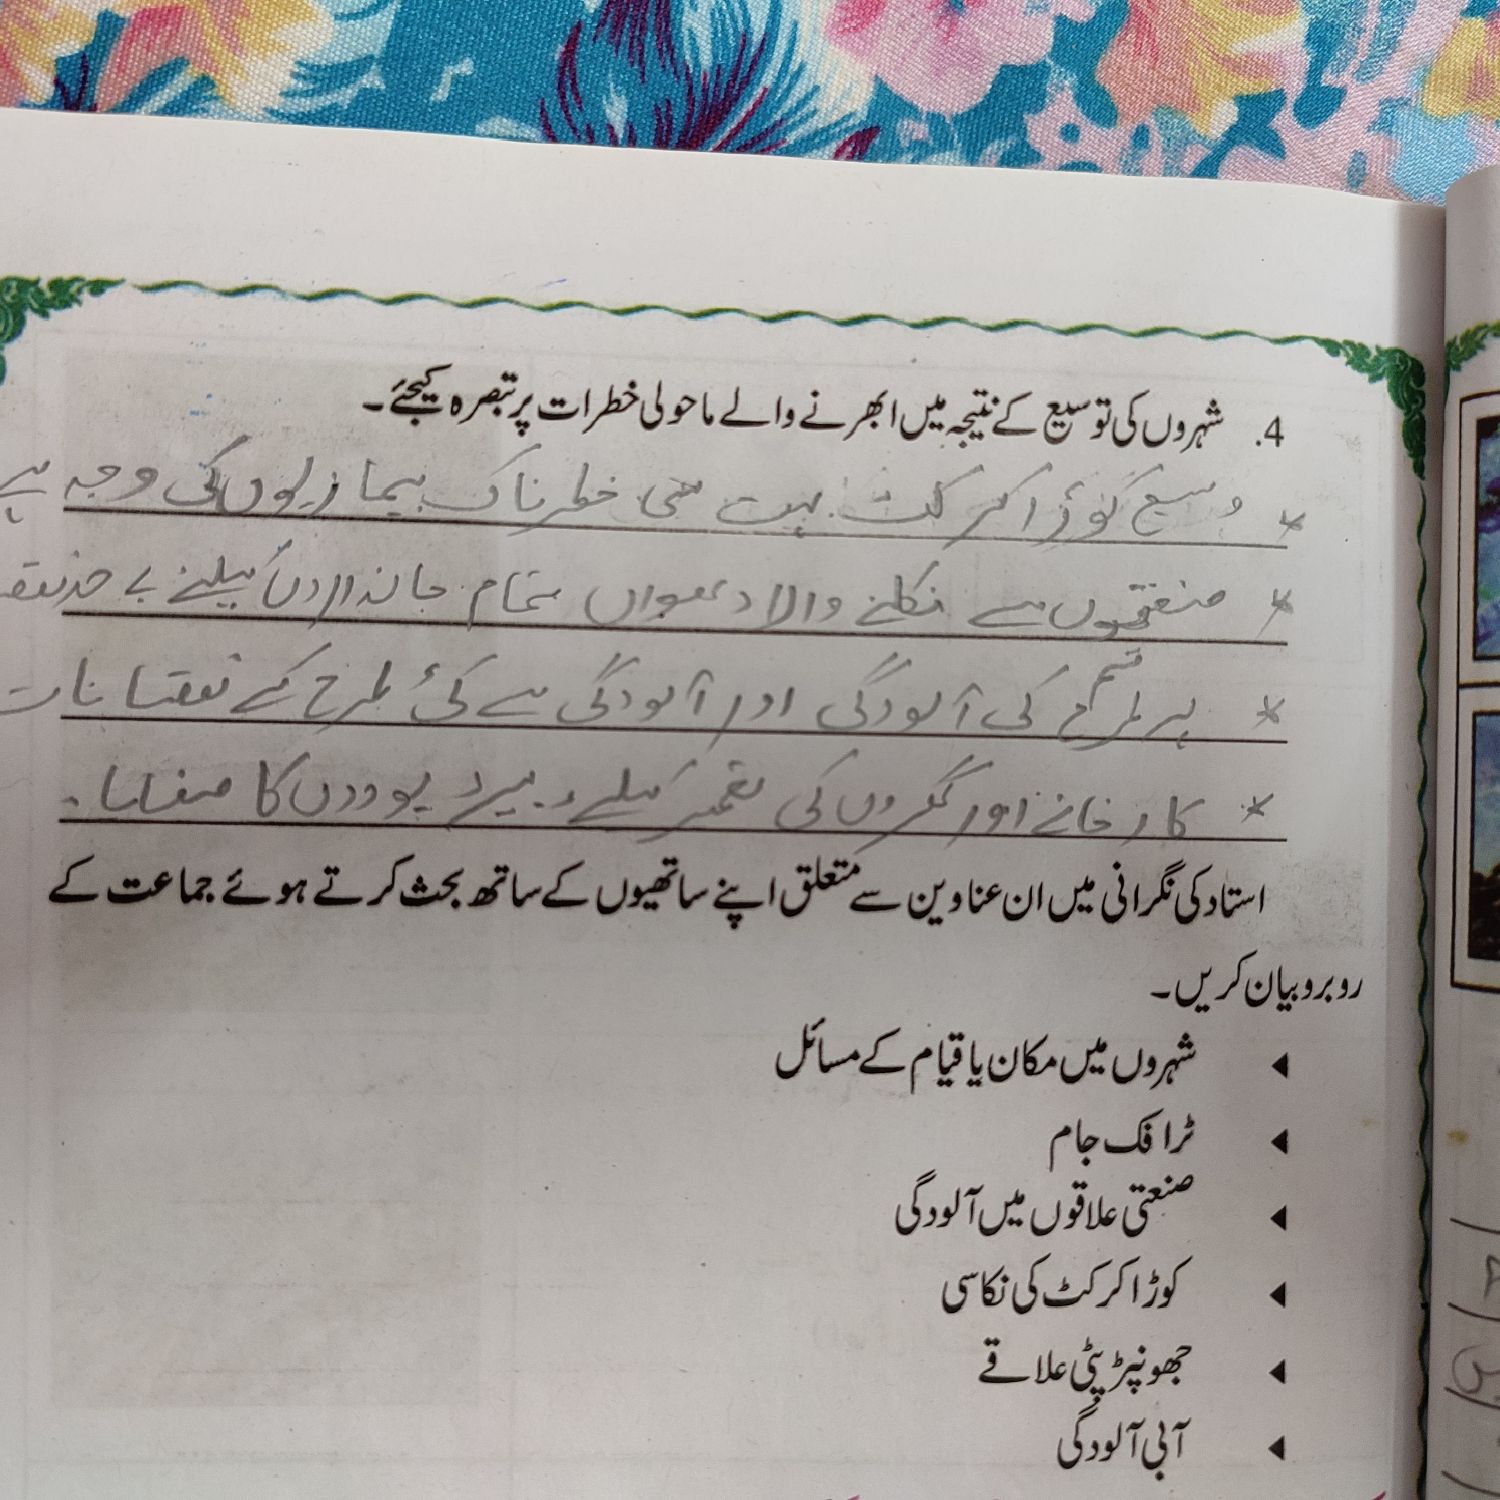 4. شہروں کی توسیع کے نتیجہ میں ابھرنے والے ماحولی خطرات پر تبصرہ کیجئے۔
* وسیع کوڑا کرکٹ بہت سی خطرناک بیماریوں کی وجہ ہے
* صنعتوں سے نکلنے والا دھواں تمام جانداروں کیلئے بے حد
* ہر قسم کی آلودگی اور آلودگی سے کئ طرح کے نقصانات
* کارخانے اور گھروں کی تعمیر کیلئے پیڑ پودوں کا صفایا۔
استاد کی نگرانی میں ان عناوین سے متعلق اپنے ساتھیوں کے ساتھ بحث کرتے ہوئے جماعت کے
روبرو بیان کریں۔
◄ شہروں میں مکان یا قیام کے مسائل
◄ ٹرافک جام
◄ صنعتی علاقوں میں آلودگی
◄ کوڑا کرکٹ کی نکاسی
◄ جھونپڑ پٹی علاقے
◄ آبی آلودگی